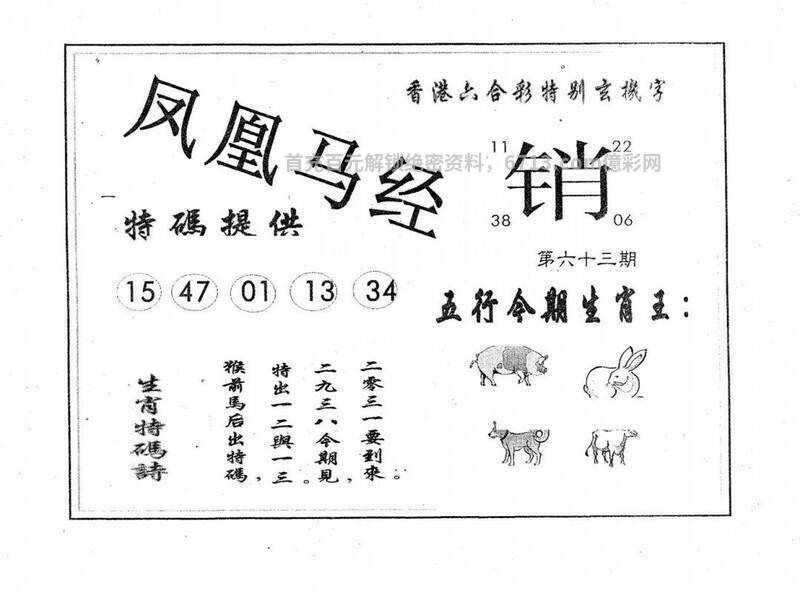 香港六合彩特别玄機字
凤凰马经
首充百元解锁绝密资料，
億彩网
11 22
销
38 06
特碼提供
第六十三期
15 47 01 13 34
五行今期生肖王：
生肖特碼詩
猴前馬后出特碼，
特出一二與一三。
二九三八今期見，
二零三一要到來。